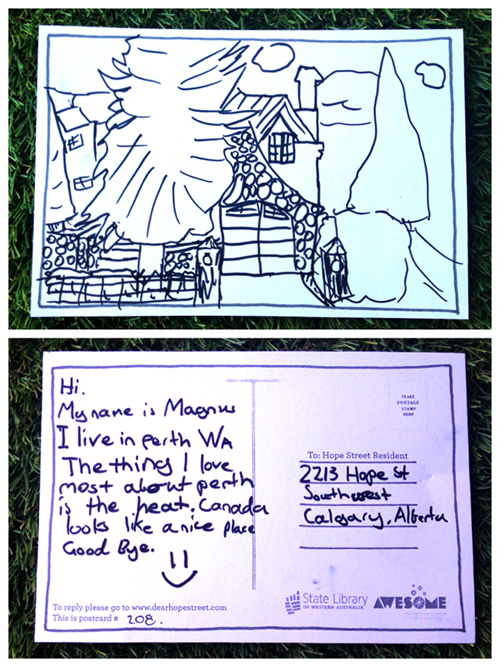 Hi.
My name is Magnus
I live in perth WA
The thing I love
most about perth
is the heat. Canada
looks like a nice place
Good Bye.
PLACE
POSTAGE
STAMP
HERE
To: Hope Street Resident
2213 Hope St
Southwest
Calgary, Alberta
To reply please go to www.dearhopestreet.com
This is postcard # 208.
State Library
OF WESTERN AUSTRALIA
AWESOME